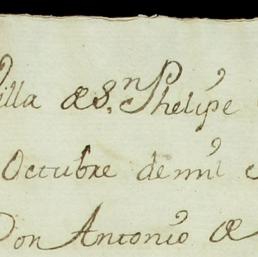 Villa de Sn. Phelipe
Octubre de mil
Don Antonio de